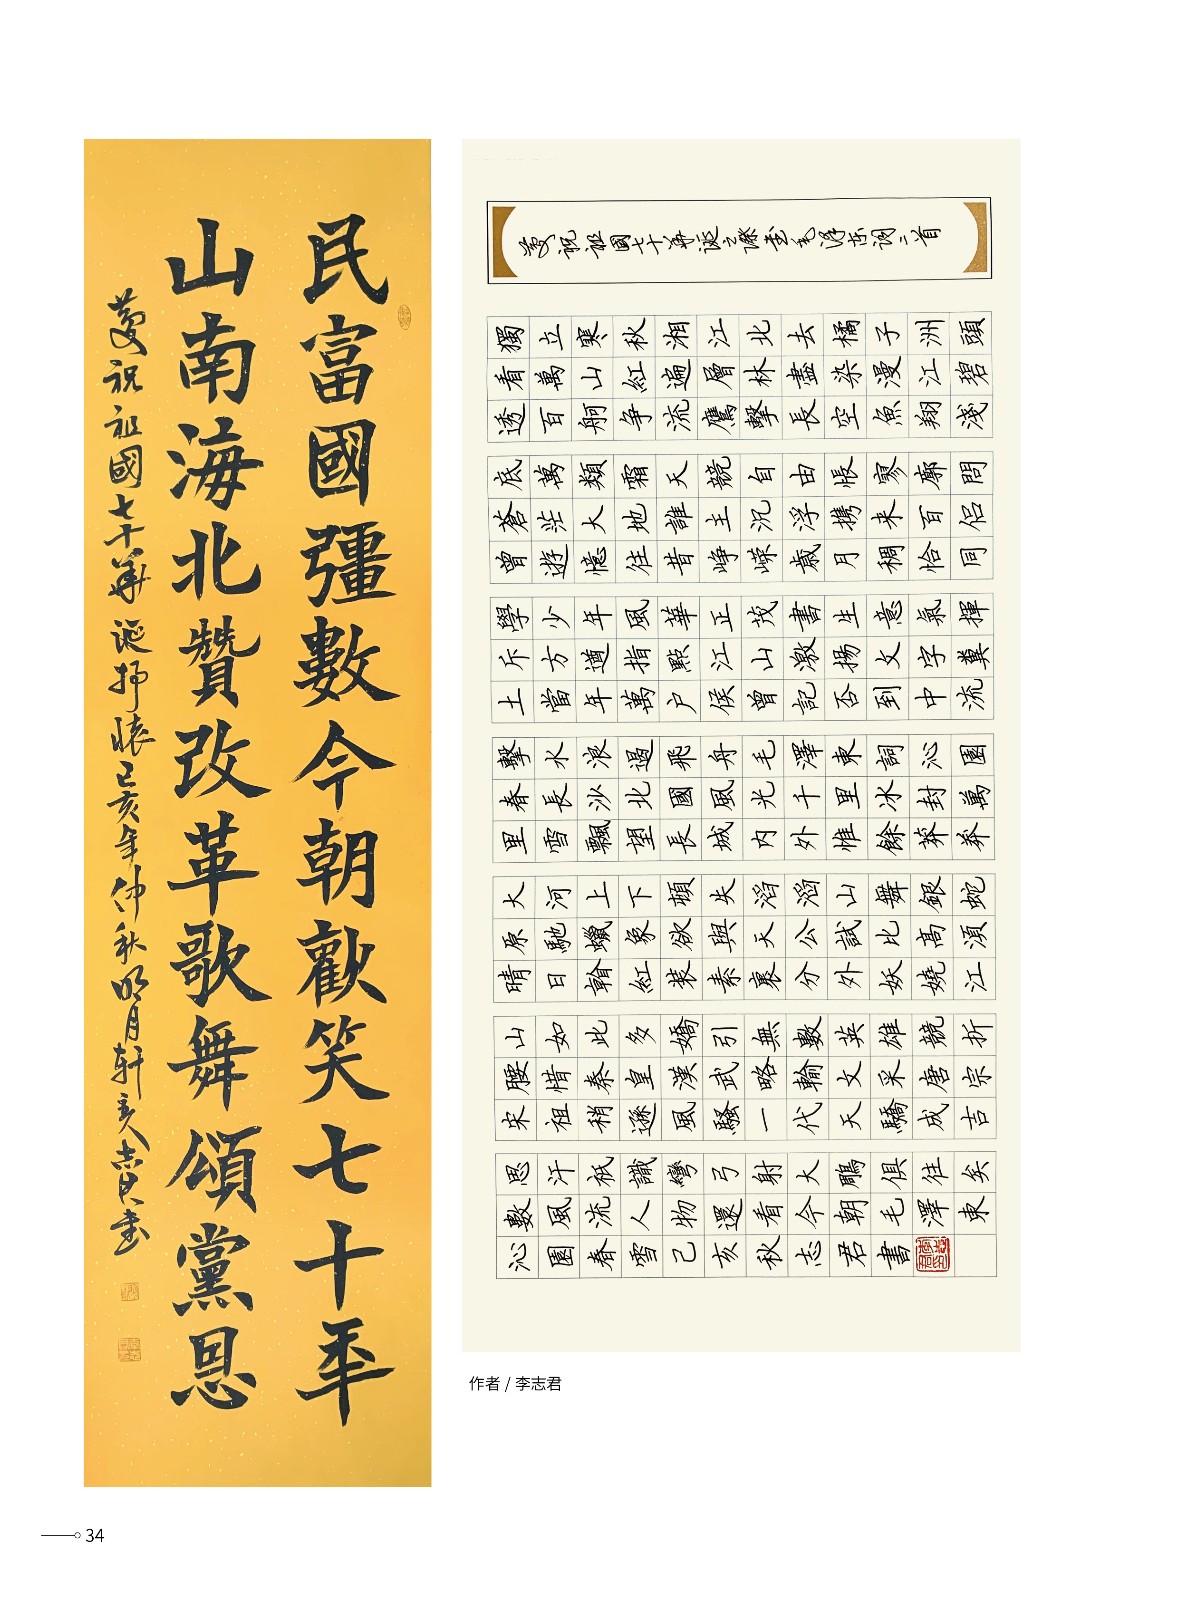 民富國彊數今朝歡笑七十年
山南海北贊改革歌舞頌黨恩
慶祝祖國七十華誕抒懷己亥年仲秋明月軒主人志君書
慶祝祖國七十華誕之際書毛澤東詞二首
獨立寒秋湘江北去橘子洲頭
看萬山紅遍層林盡染漫江碧
透百舸爭流鷹擊長空魚翔淺
底萬類霜天競自由悵寥廓問
蒼茫大地誰主沉浮攜來百侶
曾遊憶往昔崢嶸歲月稠恰同
學少年風華正茂書生意氣揮
斥方遒指點江山激揚文字糞
土當年萬户侯曾記否到中流
擊水浪遏飛舟毛澤東詞沁園
春長沙北國風光千里冰封萬
里雪飄望長城内外惟餘莽莽
大河上下頓失滔滔山舞銀蛇
原馳蠟象欲與天公試比高須
晴日翰紅裝素裹分外妖嬈江
山如此多嬌引無數英雄競折
腰惜秦皇漢武略輸文采唐宗
宋祖稍遜風騷一代天驕成吉
思汗祇識彎弓射大鵰俱往矣
數風流人物還看今朝毛澤東
沁園春雪己亥秋志君書
作者 / 李志君
34